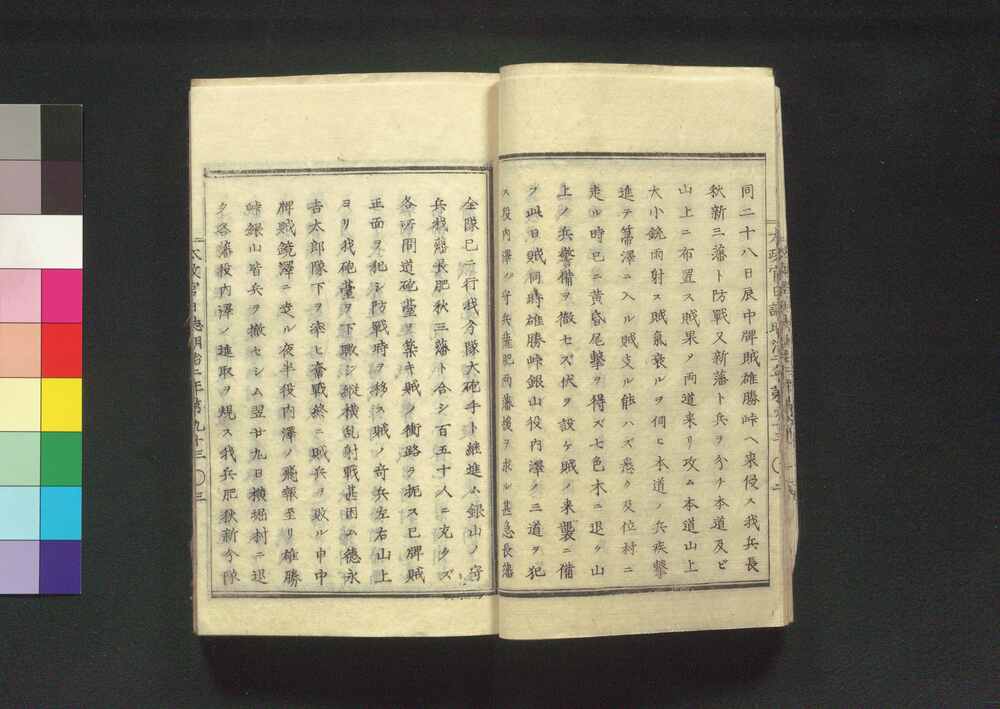 同二十八日辰中牌賊雄勝峠ヘ来侵ス我兵長
秋新三藩ト防戦又新藩ト兵ヲ分チ本道及ビ
山上ニ布置ス賊果タ両道来リ攻ム本道山上
大小銃雨射ス賊氣衰ルヲ伺ヒ本道ノ兵疾撃
進テ箒澤ニ入ル賊支ル能ハズ悉ク及位村ニ
走ル時已ニ黄昏尾撃ヲ得ズ七色木ニ退ク山
上ノ兵警備ヲ徹セズ伏ヲ設ケ賊ノ来襲ニ備
フ此日賊同時雄勝峠銀山役内澤ノ三道ヲ犯
ス役内澤ノ守兵進肥両藩援ヲ求ル甚急長藩
太政官日誌明治二年第九十三 〇二
全隊已ニ行我分隊大砲手ト継進ム銀山ノ守
兵我長肥秋三藩ト合シ百五十人ニ充タズ
各所間道砲薹ヲ築キ賊ノ衝路ヲ扼ス巳牌賊
正面ヲ犯シ防戦時ヲ移ス賊ノ奇兵左右山上
ヨリ我砲薹ヲ下瞰シ縦横乱射戦甚困ム徳永
吉太郎隊下ヲ率ヒ奮戦終ニ賊兵ヲ敗ル申中
牌賊鏡澤ニ走ル夜半役内澤ノ飛報至リ雄勝
峠銀山皆兵ヲ撤セシム翌廿九日横堀村ニ退
ク各藩役内澤ノ進取ヲ規ス我兵肥秋新分隊
太政官日誌明治二年第九十三 〇三